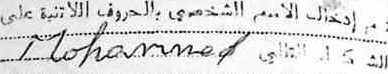 تم إدخال الاسم الشخصي بالحروف اللاتنية على
الشكل التالي Mohammed